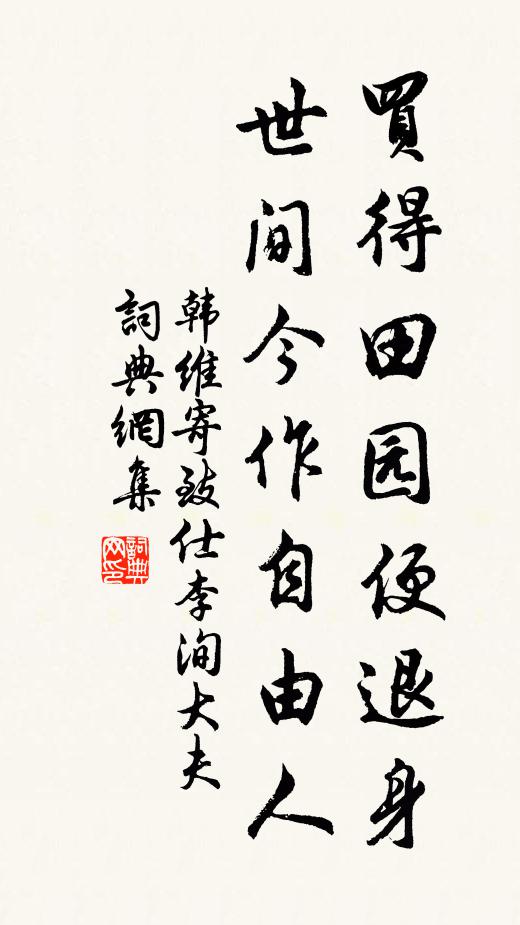 買得田园便退身
世间今作自由人
韩維寄致仕李洵大夫
詞典網集
詞典网印